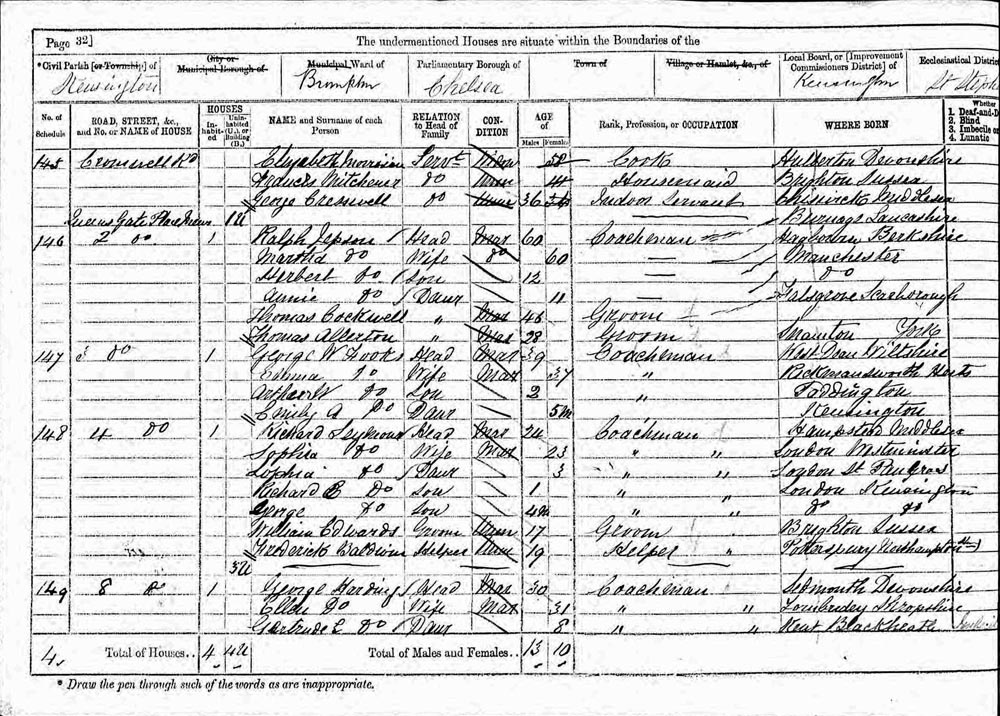 Page 32]
The undermentioned Houses are situate within the Boundaries of the
*Civil Parish [or Township] of Kensington
City or Municipal Borough of
Municipal Ward of Brompton
Parliamentary Borough of Chelsea
Town of
Village or Hamlet, &c., of
Local Board, or [Improvement Commissioners District] of Kensington
Ecclesiastical District
St Steph
No. of Schedule
ROAD, STREET, &c., and No. or NAME of HOUSE
HOUSES
Inhabited
Uninhabited (U.), or Building (B.)
NAME and Surname of each Person
RELATION to Head of Family
CONDITION
AGE of
Males
Females
Rank, Profession, or OCCUPATION
WHERE BORN
Whether
1. Deaf-and-D
2. Blind
3. Imbecile or
4. Lunatic
145 Cromwell Rd Elizabeth Servt Widow 58 Cook Devonshire
Frances Mitchener do Unm Housemaid Brighton Sussex
George Cresswell do Unm 36 Indoor Servant Chiswick Middlesex
Queens Gate Place Mews 1U Lancashire
146 2 do 1 Ralph Jepson Head Mar 60 Coachman Hagbourn Berkshire
Martha do Wife do 60 Manchester
Herbert do Son 12 do
Annie do Daur 11 Falsgrove Scarborough
Thomas Cockwell " Mar 46 Groom
Thomas Allerton " Mar 28 Groom York
147 3 do 1 George W Head Mar 39 Coachman West Dean Wiltshire
Emma do Wife Mar 37 " Rickmansworth Herts
Arthur W do Son 2 " Paddington
Emily A Do Daur 5m Kensington
148 4 do 1 Richard Seymour Head Mar 24 Coachman Hampstead Middlesex
Sophia do Wife Mar 23 " " London Westminster
Sophia do Daur 3 " " London St Pancras
Richard Do Son 1 " " London Kensington
George do Son 4m " " do do
William Edwards Groom Unm 17 Groom " Brighton Sussex
Frederick Baldwin Helper Unm 19 Helper " Potterspury Northampton
3U
149 8 do 1 George Harding Head Mar 30 Coachman Sidmouth Devonshire
Ellen Do Wife Mar 31 " " Shropshire
Gertrude E do Daur 8 " " Kent Blackheath
4. Total of Houses.. 4 4U Total of Males and Females.. 13 10
* Draw the pen through such of the words as are inappropriate.